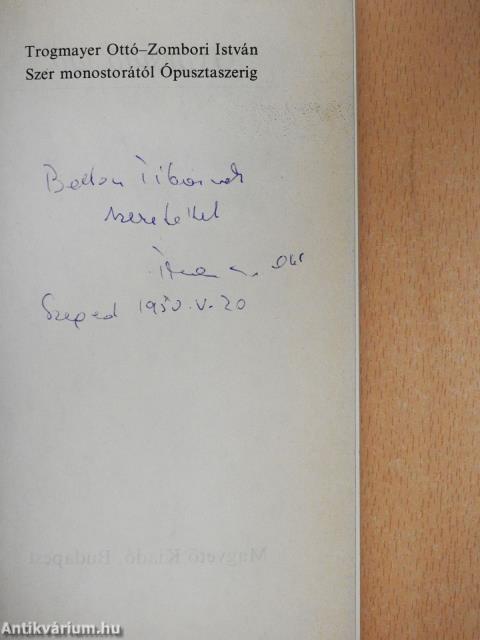 Trogmayer Ottó–Zombori István
Szer monostorától Ópusztaszerig
Tibornak
szeretettel
Ottó
Szeged 1980. V. 20
Magvető Kiadó, Budapest
Antikvárium.hu